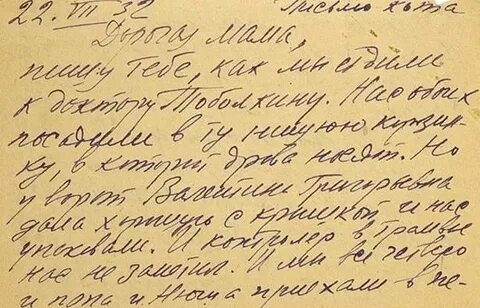 22. VII 32 Письмо кота
Дорогая мама,
пишу тебе, как мы ездили
к доктору Тоболкину. Нас обоих
посадили в ту
ку, в которой дрова носят. Но
у ворот Валентина Григорьевна
дала корзинку с крышкой и нас
упаковали. И контролер в трамвае
нас не заметил. И мы все четверо
и папа и Нюша приехали в